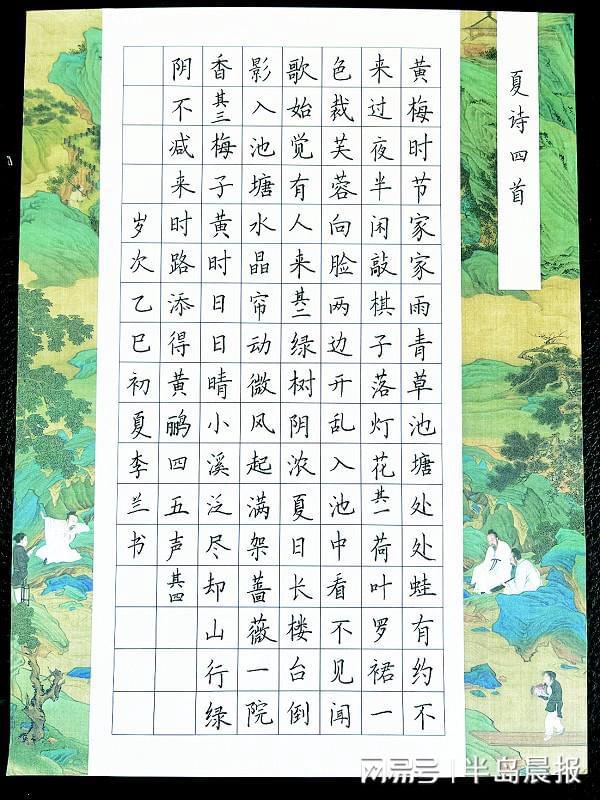 夏诗四首
黄梅时节家家雨青草池塘处处蛙有约不
来过夜半闲敲棋子落灯花其一荷叶罗裙一
色裁芙蓉向脸两边开乱入池中看不见闻
歌始觉有人来其二绿树阴浓夏日长楼台倒
影入池塘水晶帘动微风起满架蔷薇一院
香其三梅子黄时日日晴小溪泛尽却山行绿
阴不减来时路添得黄鹂四五声其四
岁次乙巳初夏李兰书
网易号 | 半岛晨报